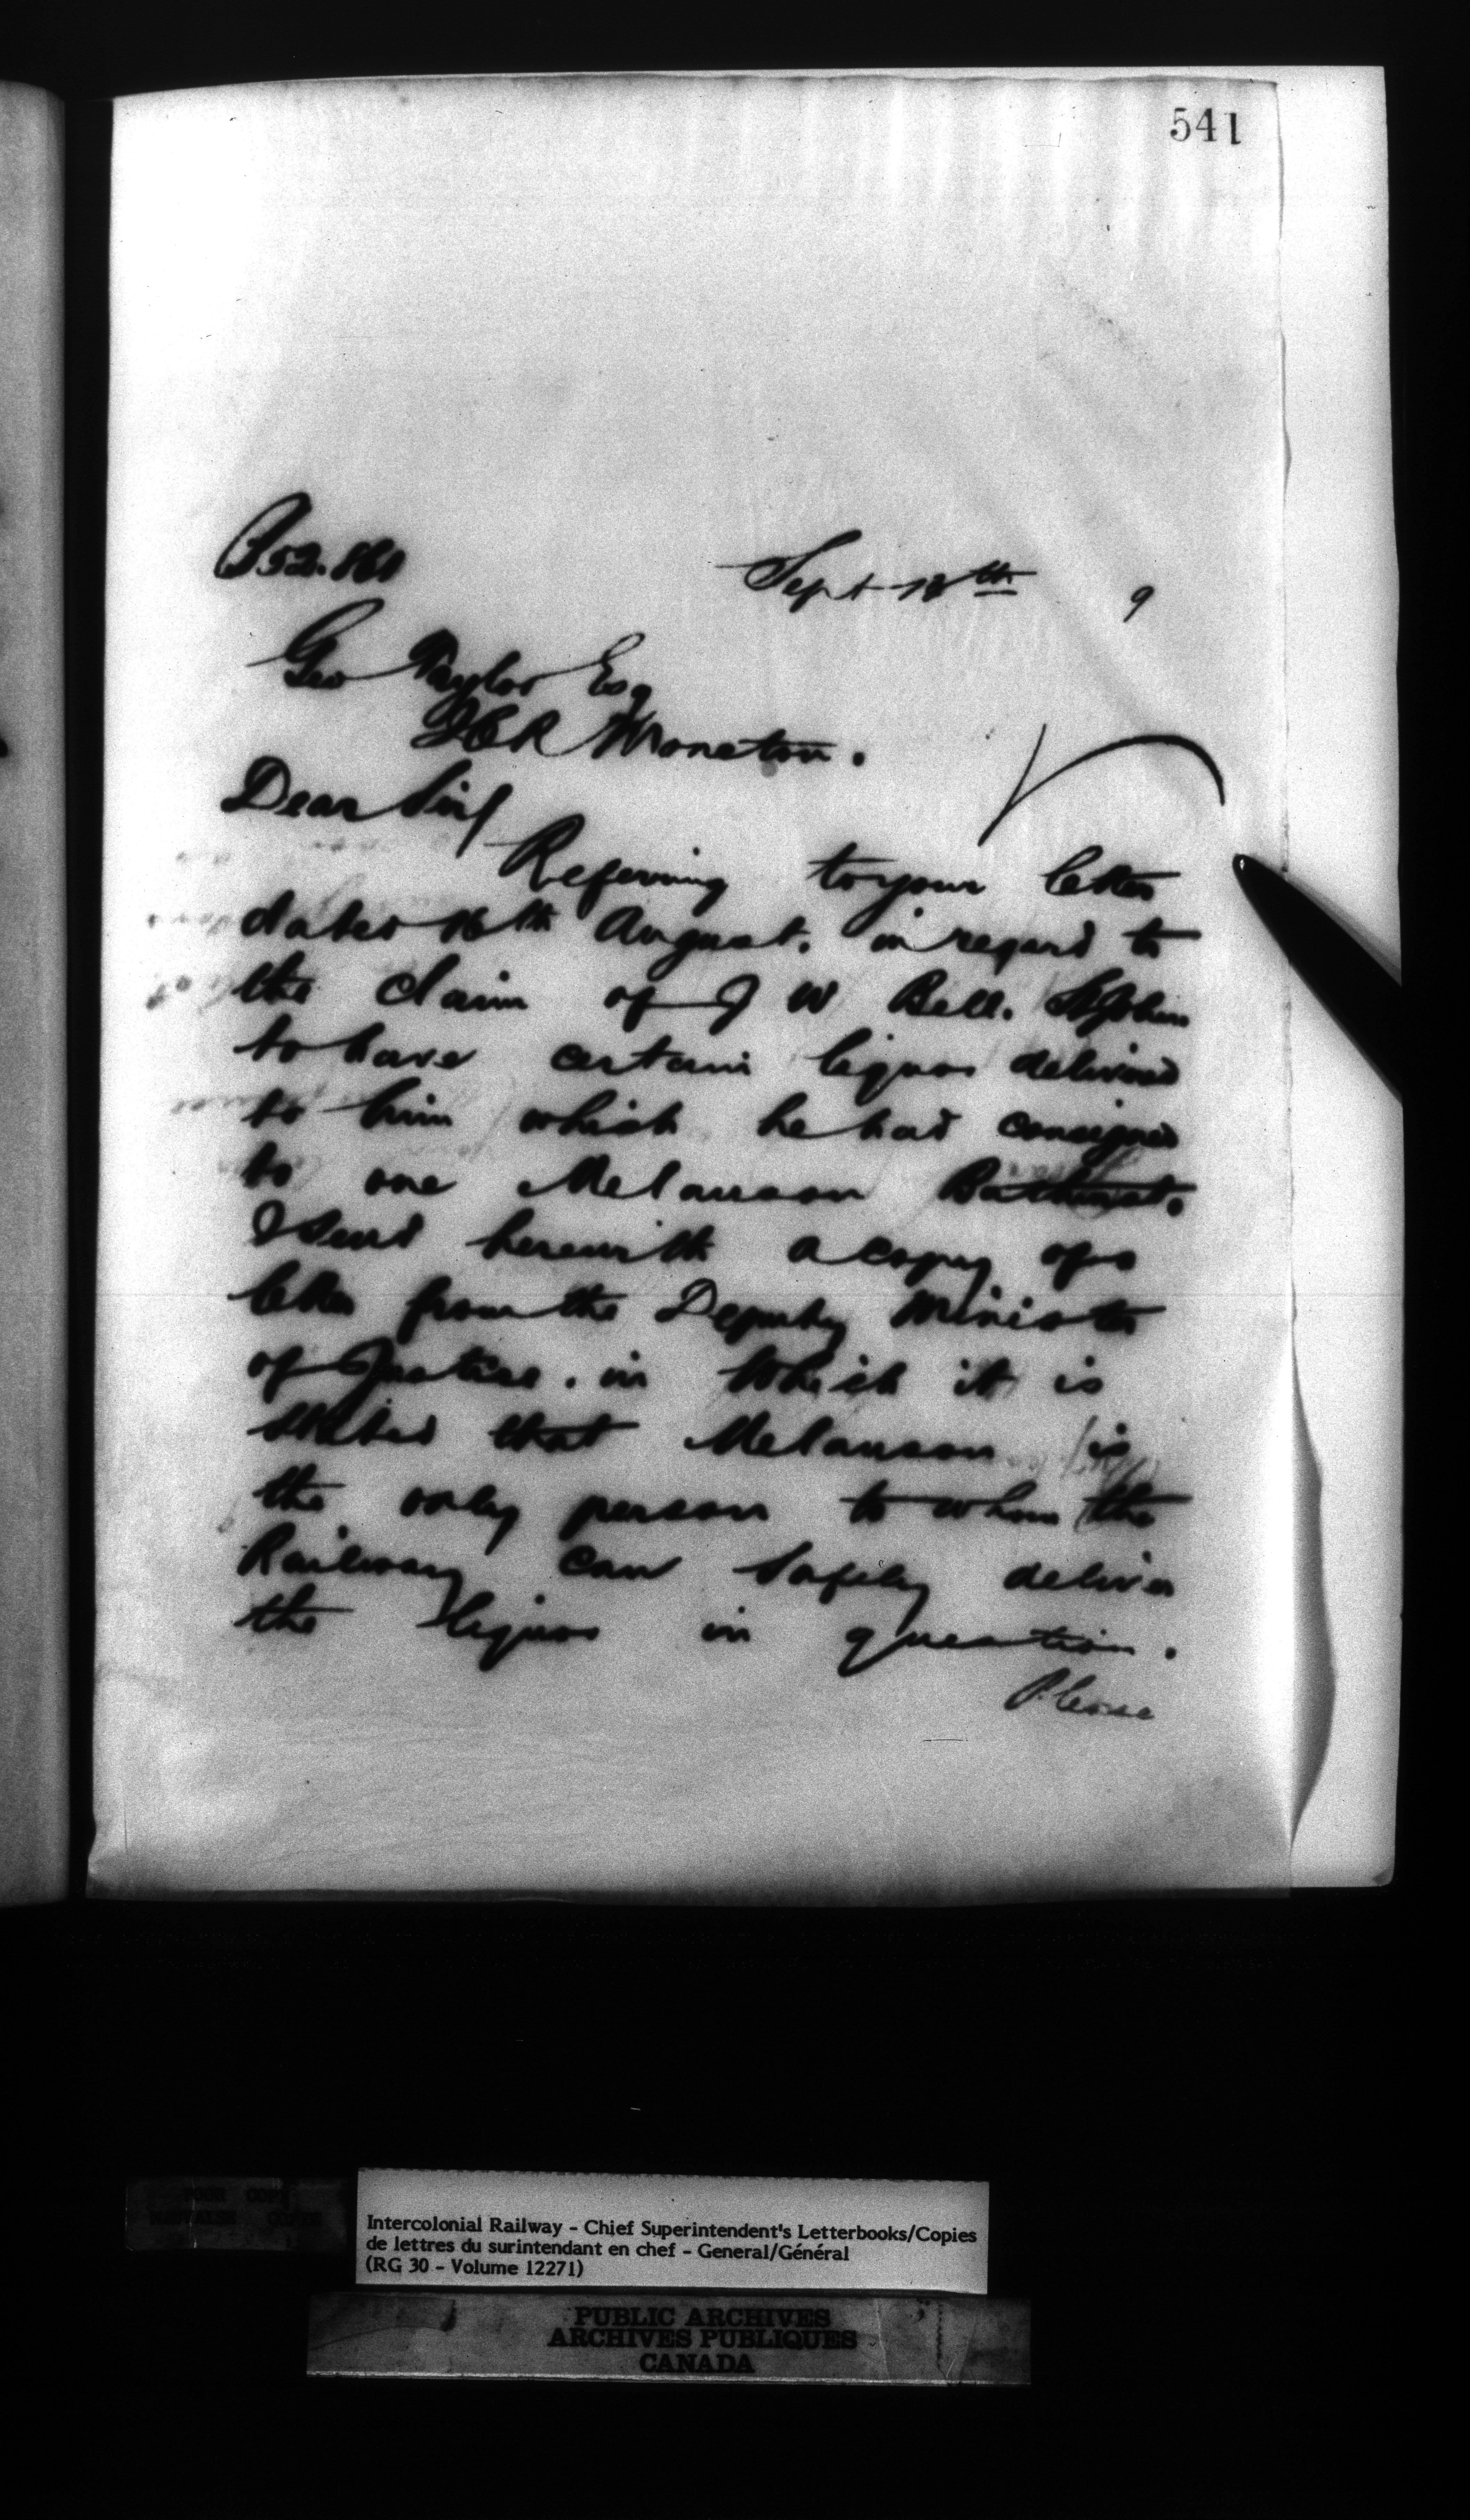 541
Sept 18th 9
Geo Taylor Esq
ICR Moncton.
Dear Sir/
Referring to your letter
dated 16th August. in regard to
the claim of J W Bell. St John
to have certain liquor delivered
to him which he had consigned
to one Melanson Bathurst.
I send herewith a copy of a
letter from the Deputy Minister
of Justice. in which it is
stated that Melanson is
the only person to whom the
Railway can safely deliver
the liquor in question.
Please
POOR COPY
MAUVAISE COPIE
Intercolonial Railway - Chief Superintendent's Letterbooks/Copies
de lettres du surintendant en chef - General/Général
(RG 30 - Volume 12271)
PUBLIC ARCHIVES
ARCHIVES PUBLIQUES
CANADA